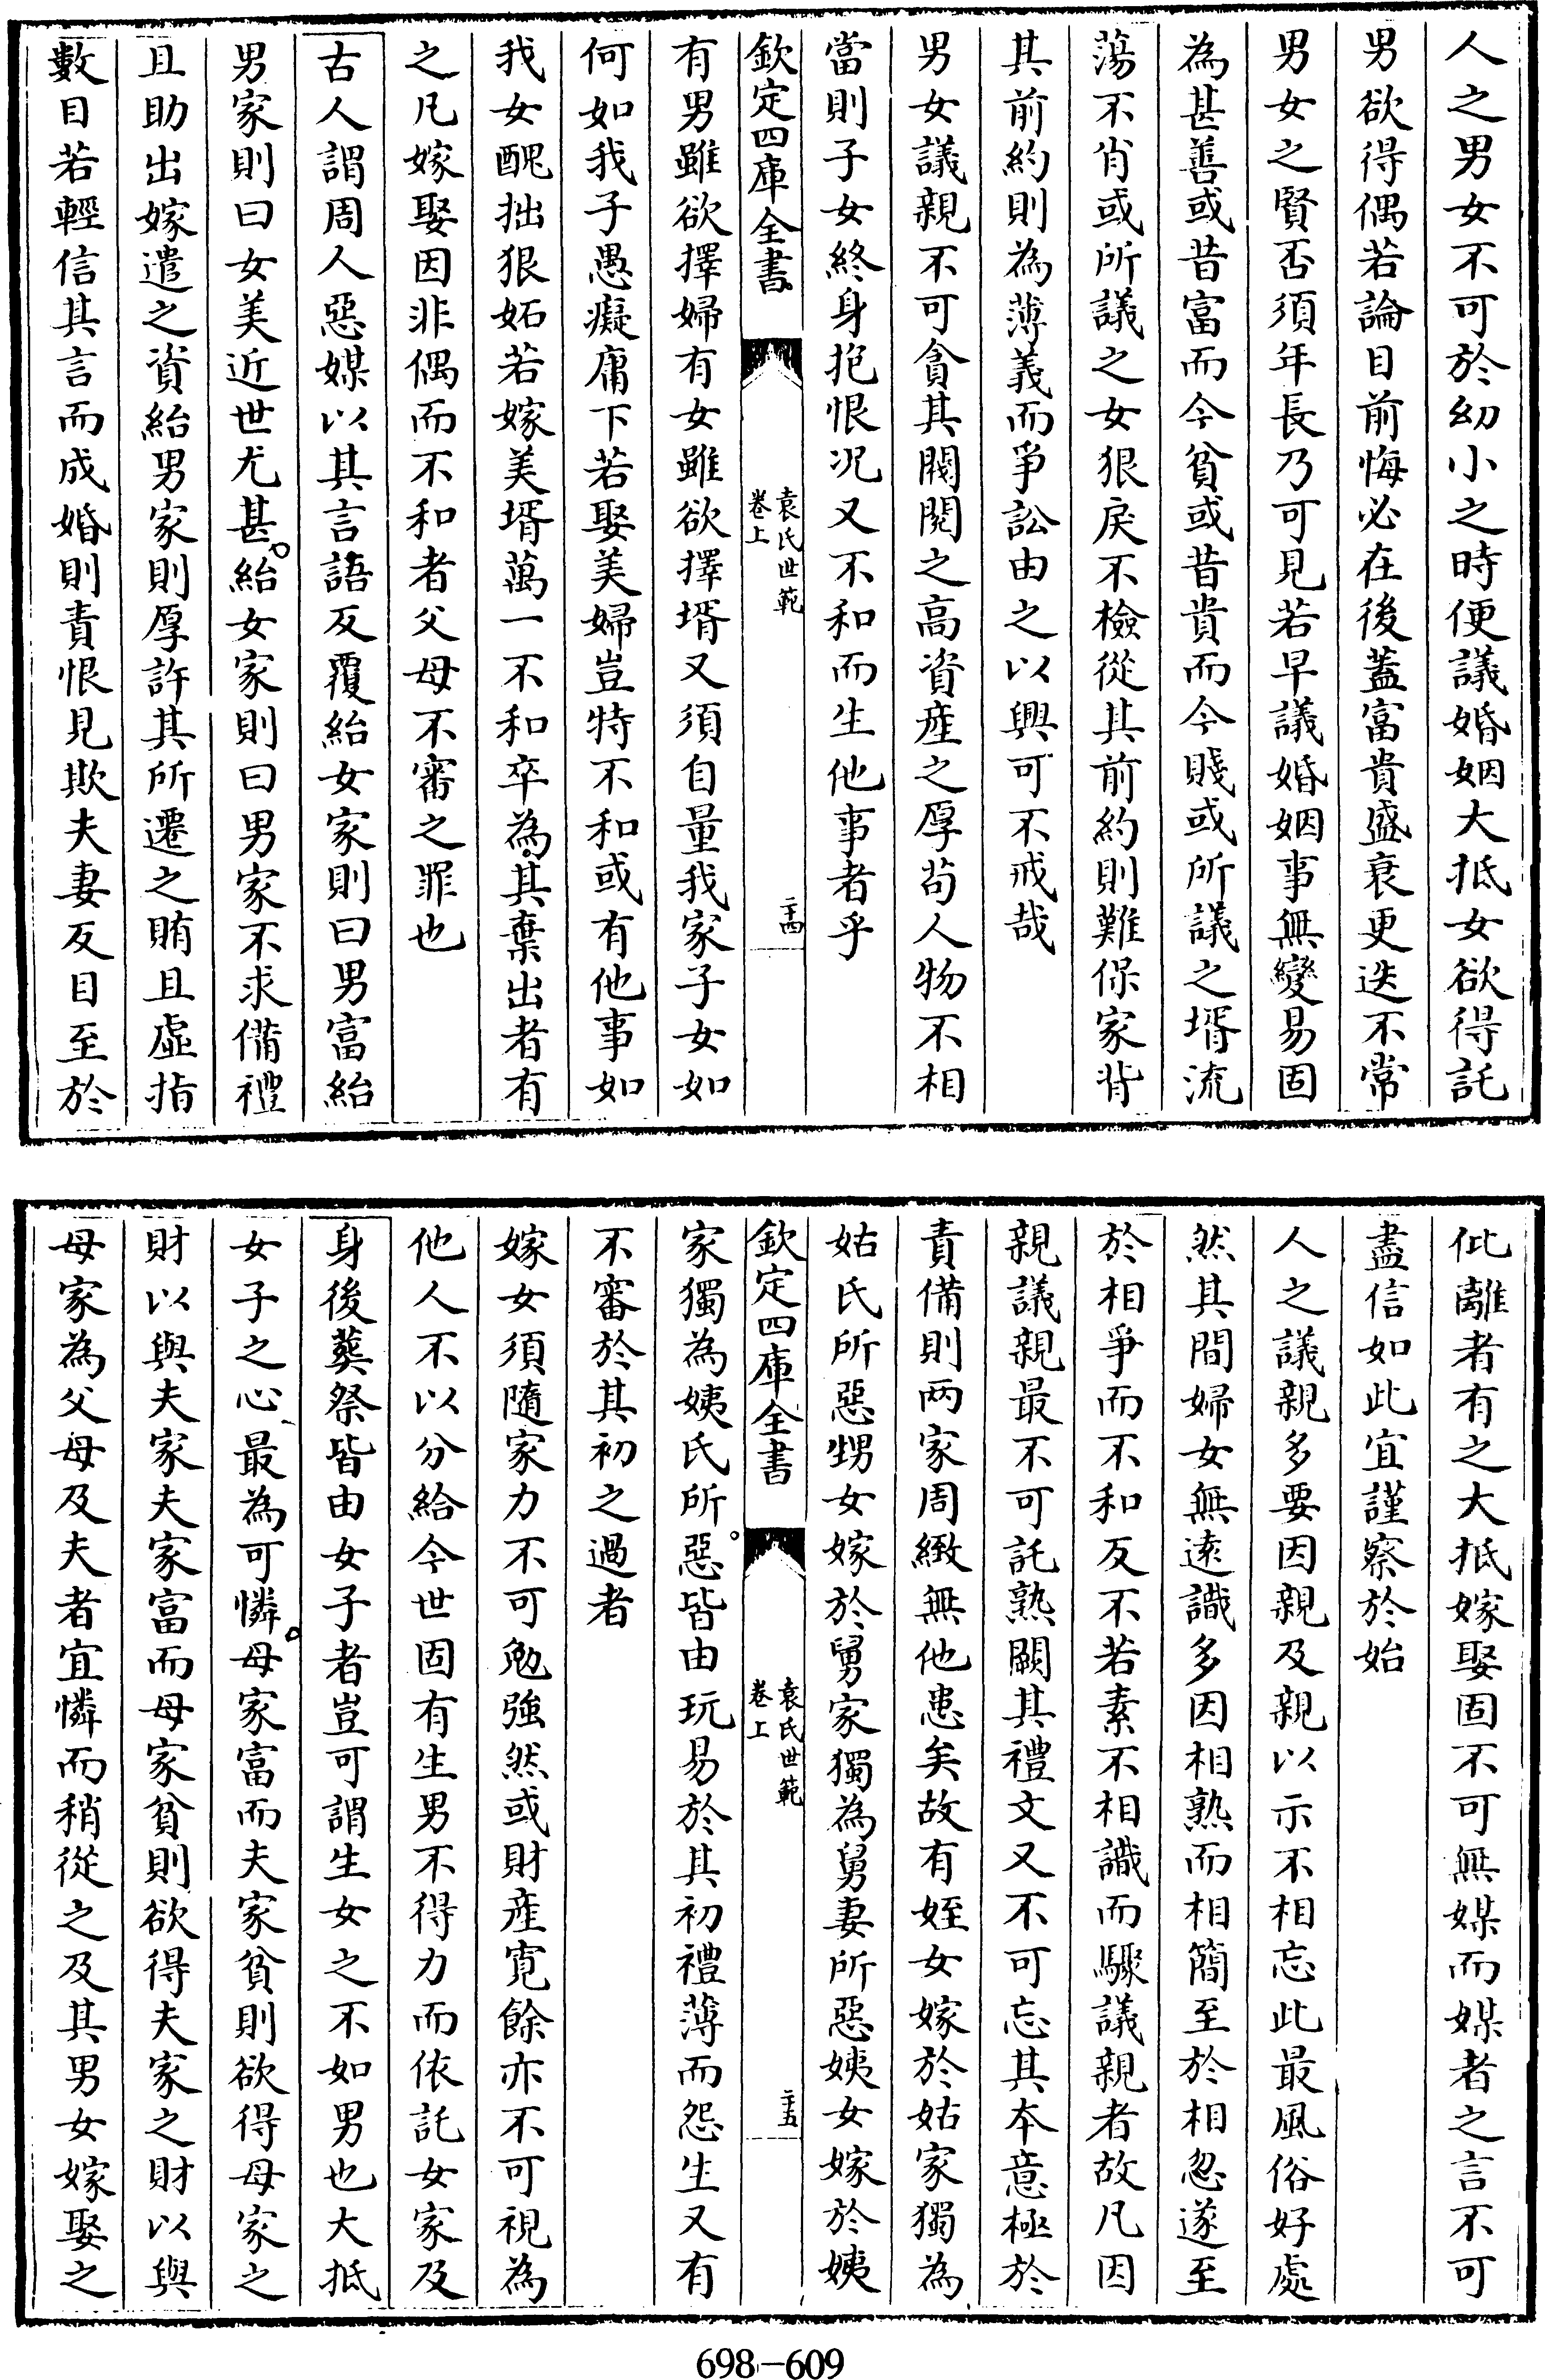 人之男女不可於幼小之時便議婚姻大抵女欲得託
男欲得偶若論目前悔必在後蓋富貴盛衰更迭不常
男女之賢否須年長乃可見若早議婚姻事無變易固
為甚善或昔富而今貧或昔貴而今賤或所議之壻流
蕩不肖或所議之女狠戾不檢從其前約則難保家背
其前約則為薄義而爭訟由之以興可不戒哉
男女議親不可貪其閥閱之高資產之厚苟人物不相
當則子女終身抱恨况又不和而生他事者乎
欽定四庫全書
袁氏世範
卷上
二十四
有男雖欲擇婦有女雖欲擇壻又須自量我家子女如
何如我子愚癡庸下若娶美婦豈特不和或有他事如
我女醜拙狠妬若嫁美壻萬一不和卒為其棄出者有
之凡嫁娶因非偶而不和者父母不審之罪也
古人謂周人惡媒以其言語反覆紿女家則曰男富紿
男家則曰女美近世尤甚紿女家則曰男家不求備禮
且助出嫁遣之資紿男家則厚許其所遷之賄且虛指
數目若輕信其言而成婚則責恨見欺夫妻反目至於
仳離者有之大抵嫁娶固不可無媒而媒者之言不可
盡信如此宜謹察於始
人之議親多要因親及親以示不相忘此最風俗好處
然其間婦女無遠識多因相熟而相簡至於相忽遂至
於相爭而不和反不若素不相識而驟議親者故凡因
親議親最不可託熟闕其禮文又不可忘其本意極於
責備則两家周緻無他患矣故有姪女嫁於姑家獨為
姑氏所惡甥女嫁於舅家獨為舅妻所惡姨女嫁於姨
欽定四庫全書
袁氏世範
卷上
二十五
家獨為姨氏所惡皆由玩易於其初禮薄而怨生又有
不審於其初之過者
嫁女須隨家力不可勉強然或財產寬餘亦不可視為
他人不以分給今世固有生男不得力而依託女家及
身後葬祭皆由女子者豈可謂生女之不如男也大抵
女子之心最為可憐母家富而夫家貧則欲得母家之
財以與夫家夫家富而母家貧則欲得夫家之財以與
母家為父母及夫者宜憐而稍從之及其男女嫁娶之
698-609